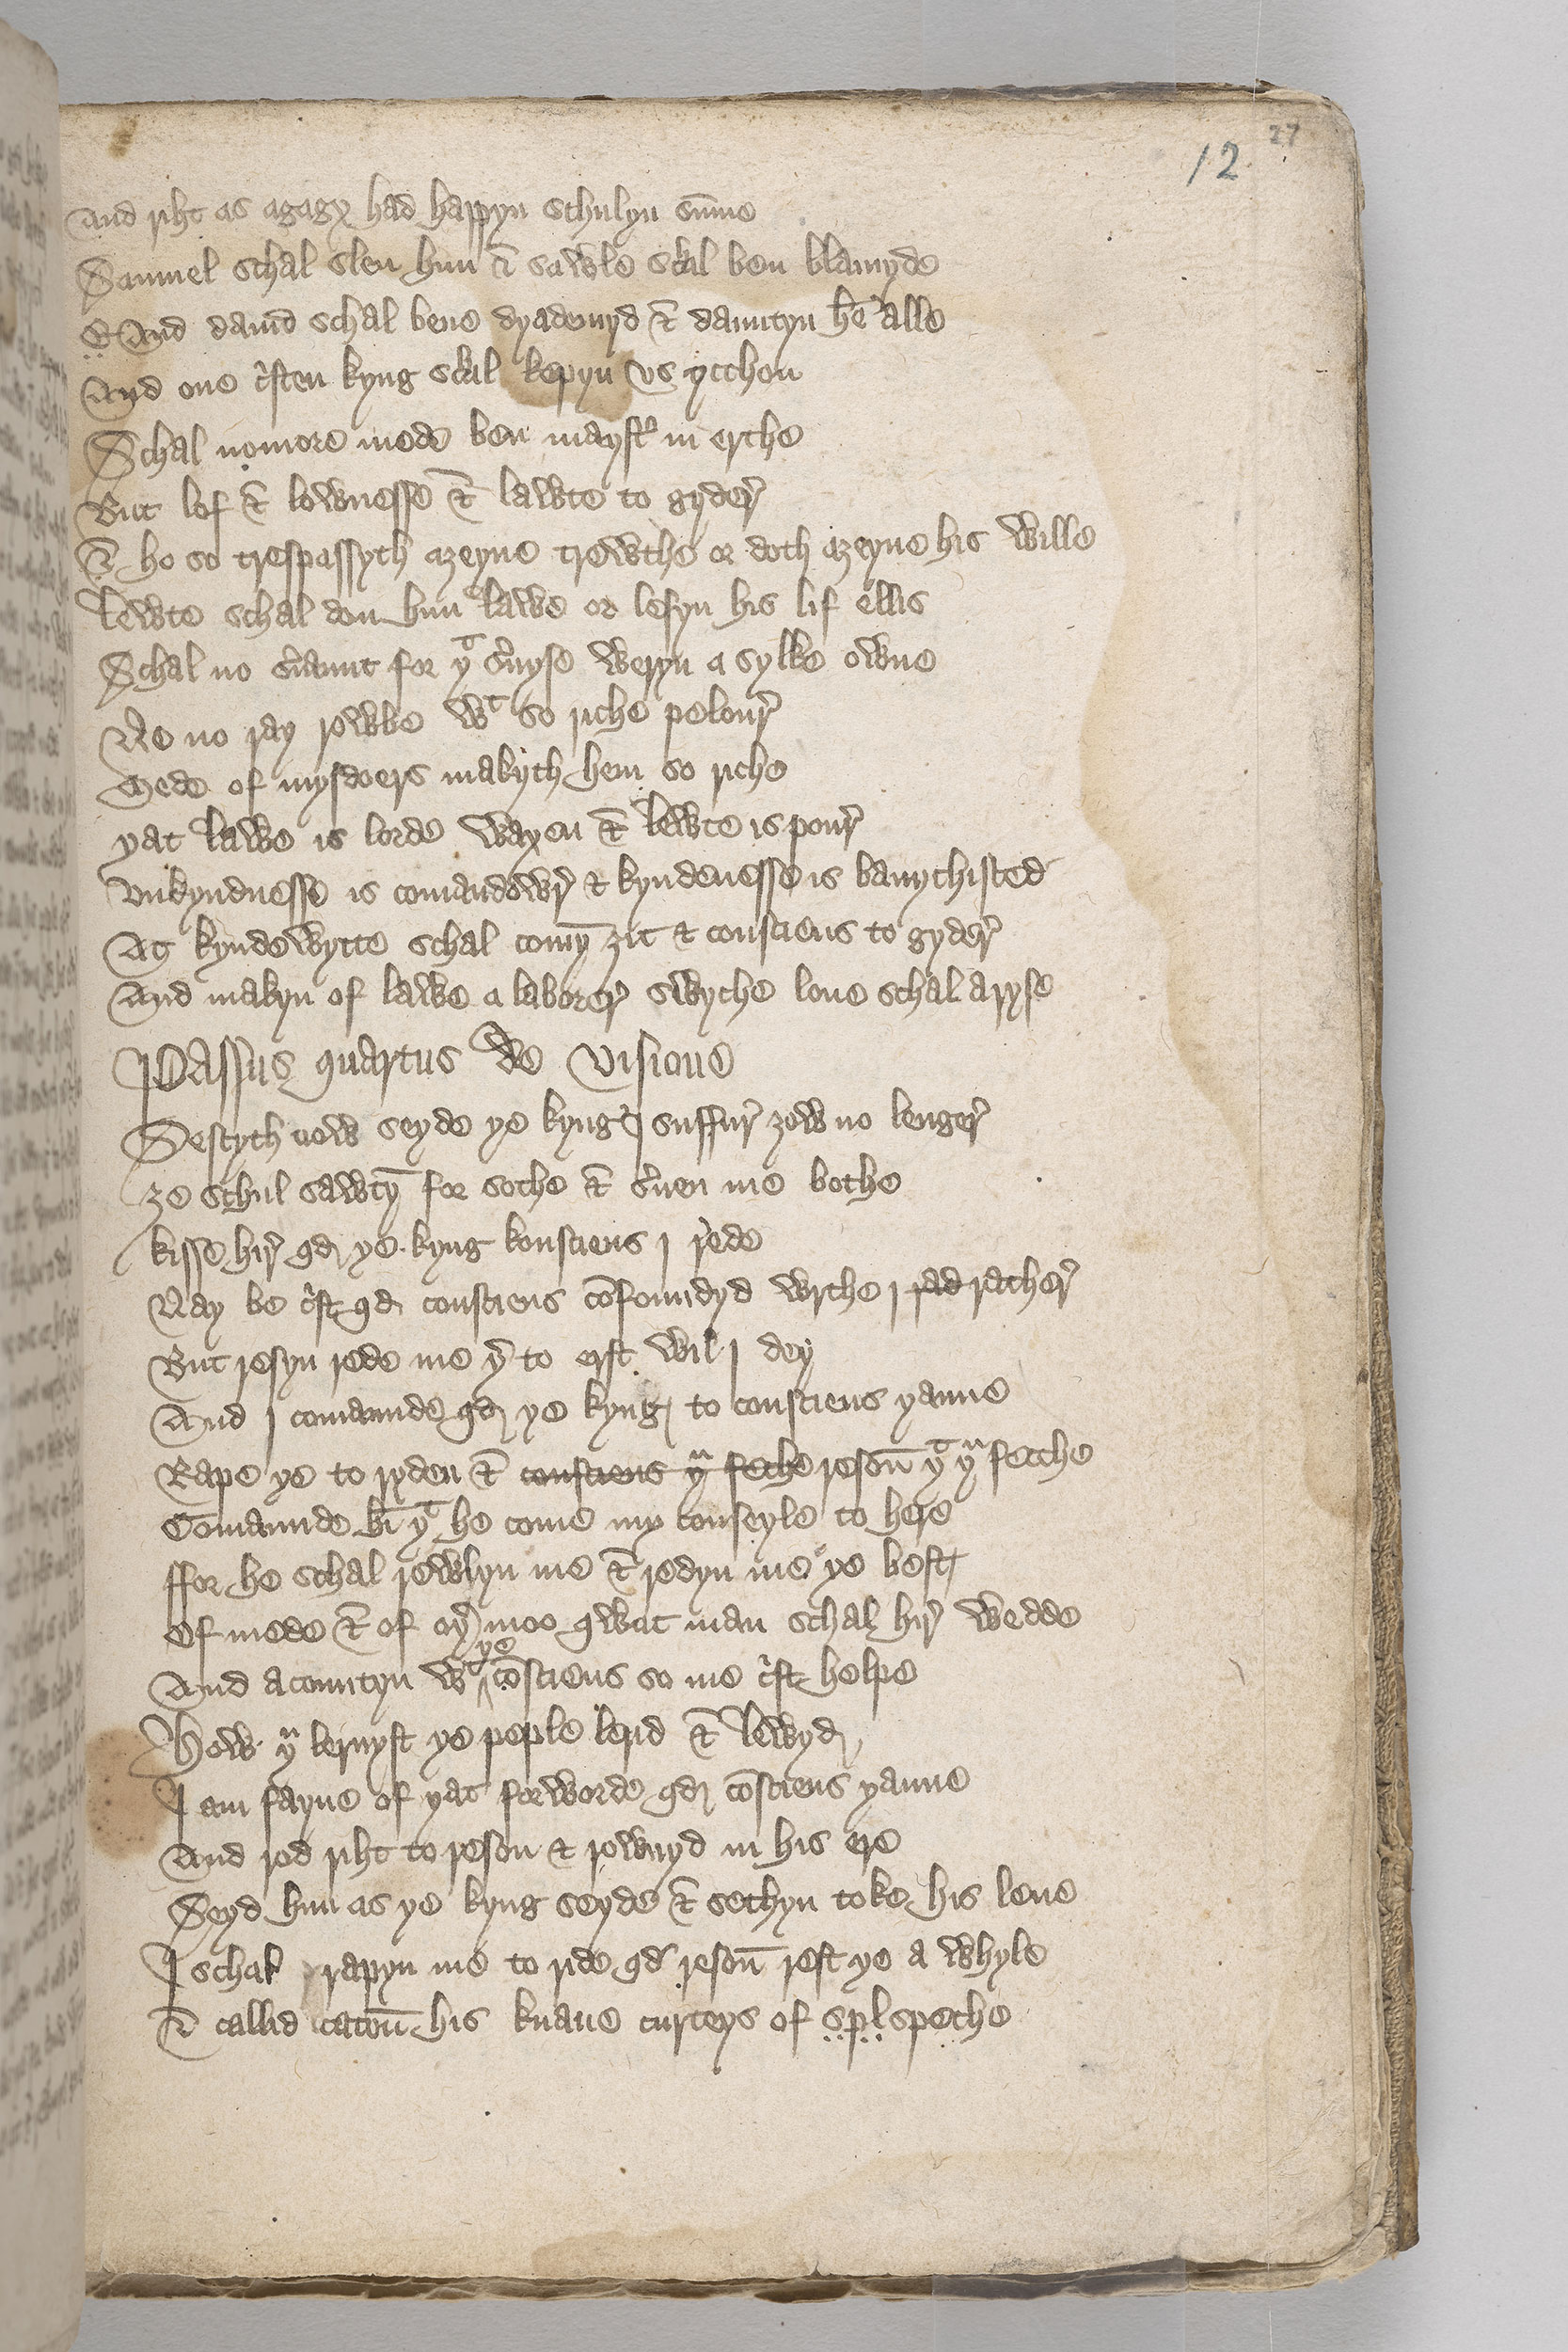 12 27
And riht as agagx had happyn schulyn su̅me
Samuel schal slen hym & sawle schal ben blamyde
& And dauid schal bene dyademyd & dauntyn he̅ alle
And one c̉sten kyng schal kepyn vs ycchon
Schal nomore mede ben mayst͛ in erthe
But lof & lownesse & lawte to gyder͛
& ho so trespassyth aȝeyne trewthe or doth aȝeyne his wille
lewte schal don hym lawe or lesyn his lif ellis
Schal no s͛uaunt for yᵗ s͛uyse weryn a sylke owne
Ne no ray rowbe wᵗ so riche pelour͛
Mede of mysdoers makyth hem so riche
yat lawe is lorde waxen & lewte is pour͛
vnkyndnesse is comandowr͛ & kyndenesse is banychisted
Ac kyndewytte schal comy̅ ȝit & consciens to gyder͛
And makyn of lawe a laborer͛ swyche loue schal aryse
Passus quartus de visione
Sesctyth now seyde ye kyng I suffur͛ ȝow no lenger͛
ȝe schul sawty̅ for sothe & s͛uen me bothe
kisse hir͛ qd ye kyng konsciens I rede
Nay be c̉st qd consciens co̅foundyd wrthe I rad rather͛
But resyn rede me y͛ to erst wil I dey
And I comaunde qd ye kyng to consciens yanne
Rape ye to ryden & consciens yᵘ feche reson̅ yᵗ yᵘ fecche
Comaunde hi̅ yᵗ he come my conseyle to here
ffor he schal rewlyn me & redyn me ye best
Of mede & of oy͛ moo qwat man schal hir͛ wedde
And acountyn wᵗ ye co̅sciens so me c̉st helpe
How yᵘ lernyst ye peple lerid & lewyd
I am fayne of yat forworde qd co̅sciens yanne
And rod riht to reson & rownyd in his ere
Seyd hym as ye kyng seyde & sethyn toke his leue
I schal rapyn me to ride qd reson̅ rest ye a whyle
& callid catou̅ his knaue curteys of spl speche